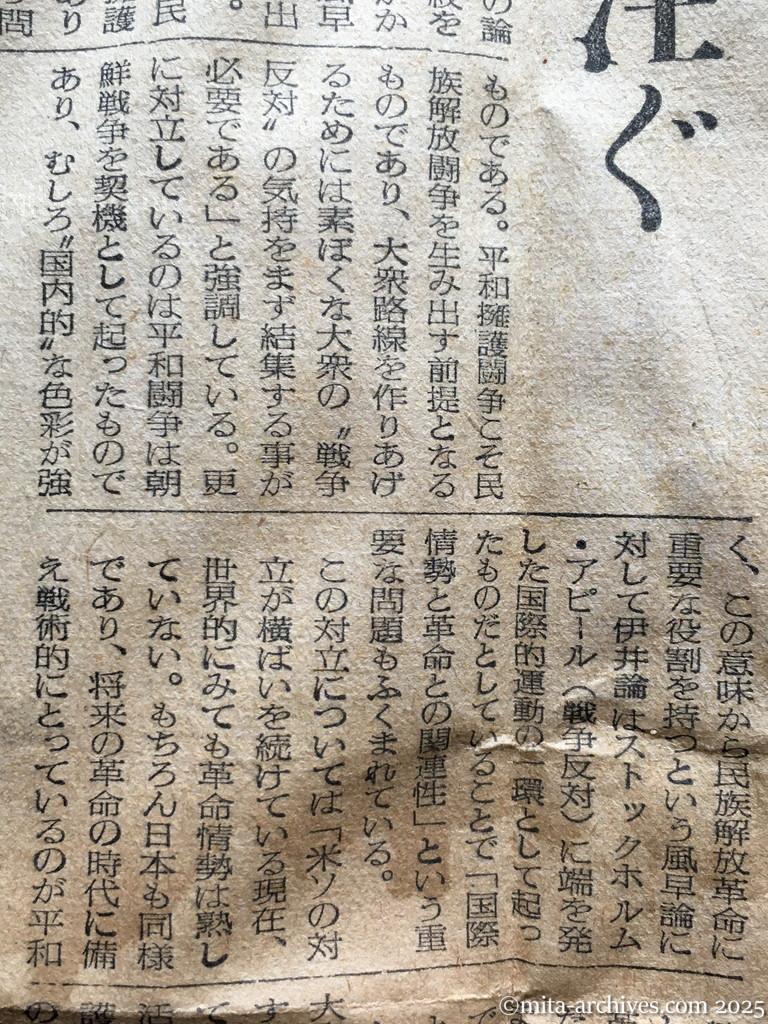 注ぐ
の論
ものである。平和擁護闘争こそ民
族解放闘争を生み出す前提となる
ものであり、大衆路線を作りあげ
るためには素ぼくな大衆の〝戦争
反対〟の気持をまず結集する事が
必要である」と強調している。更
に対立しているのは平和闘争は朝
鮮戦争を契機として起ったもので
あり、むしろ〝国内的〟な色彩が強
く、この意味から民族解放革命に
重要な役割を持つという風早論に
対して伊井論はストックホルム
・アピール（戦争反対）に端を発
した国際的運動の一環として起っ
たものだとしていることで「国際
情勢と革命との関連性」という重
要な問題もふくまれている。
この対立については「米ソの対
立が横ばいを続けている現在、
世界的にみても革命情勢は熟し
ていない。もちろん日本も同様
であり、将来の革命の時代に備
え戦術的にとっているのが平和
©mita-archives.com 2025